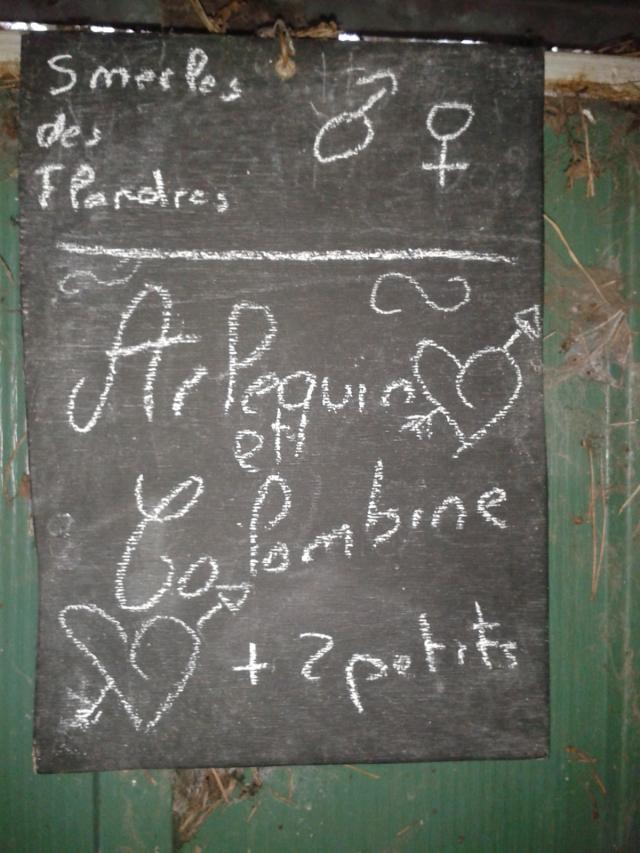 Smerles
des
Flandres
♂ ♀
Arlequin
et
Colombine
+ 2 petits